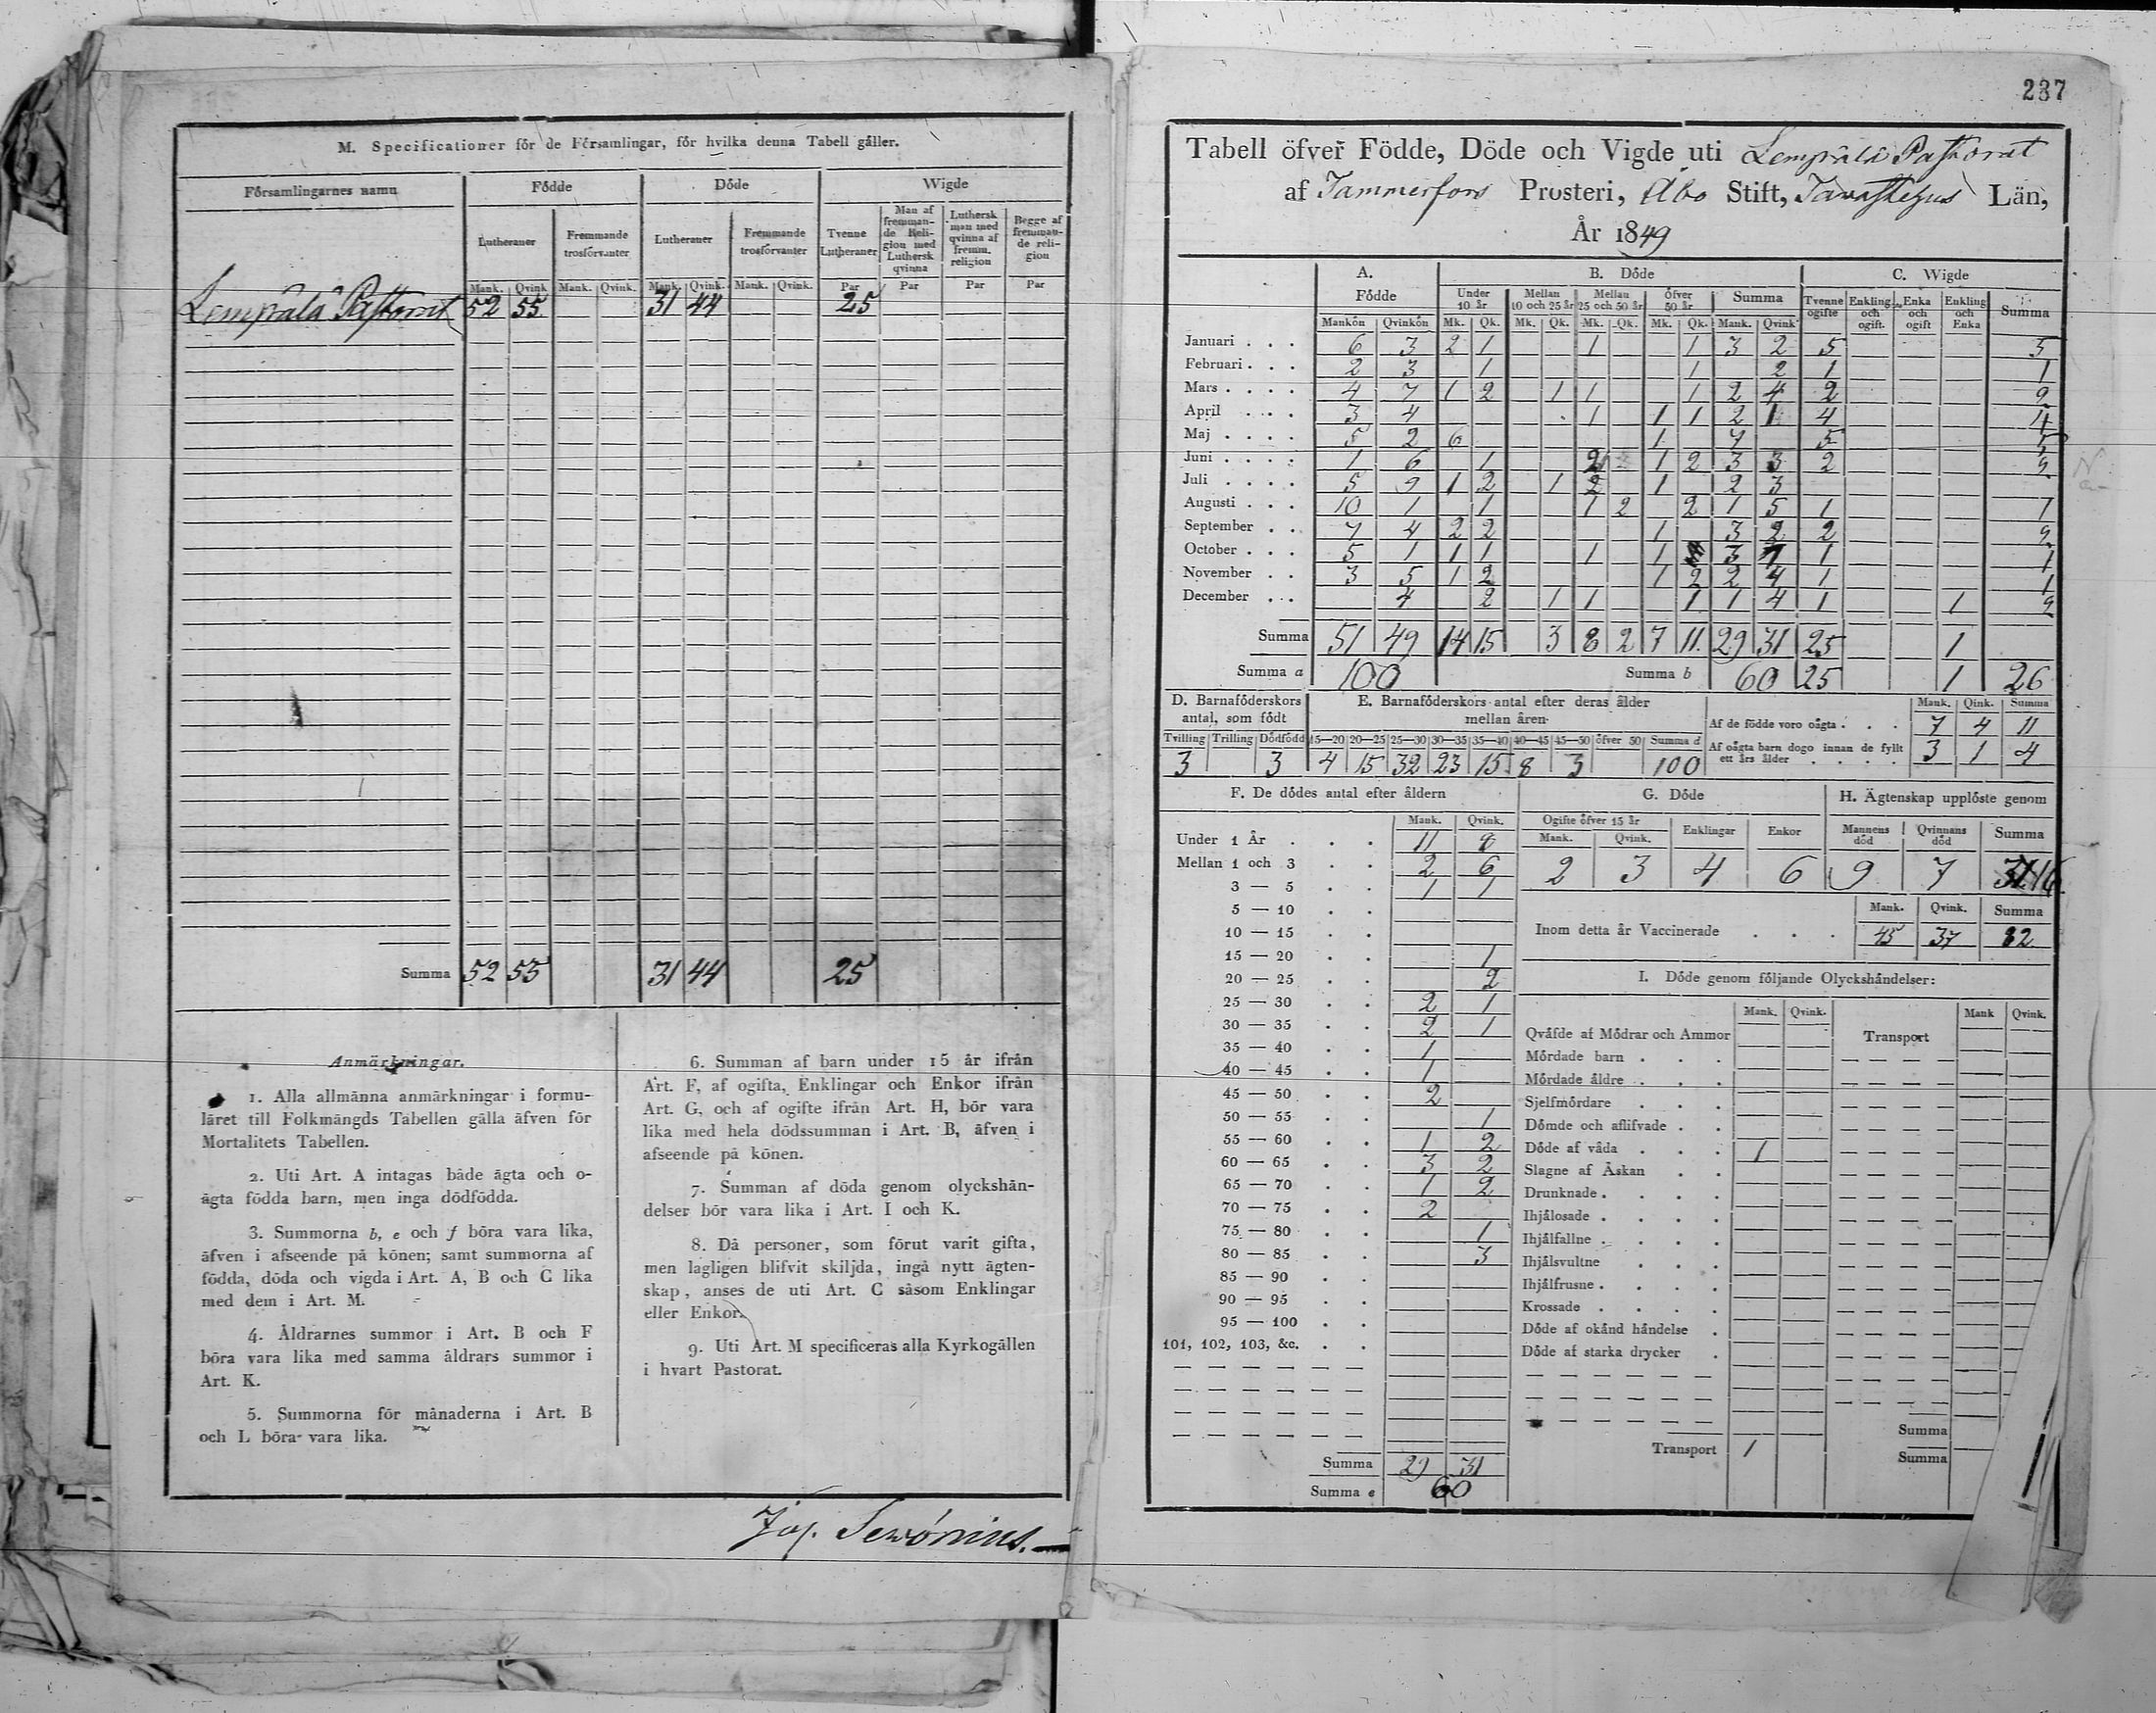 M. Specificationer för de Församlingar, för hvilka denna Tabell gäller.
Församlingarnes namn Födde Döde Wigde
Lutheraner Fremmande trosförvanter Lutheraner Fremmande trosförvanter Tvenne Lutheraner Man af fremmande Religion med Luthersk qvinna Luthersk man med qvinna af fremm. religion Begge af fremmande religion
Mank. Qvink Mank. Qvink. Mank. Qvink. Mank. Qvink. Par Par Par Par
Lempälä Pastorat 52 55 31 44 25
Summa 52 55 31 44 25
Anmärkningar.
1. Alla allmänna anmärkningar i formu-
läret till Folkmängds Tabellen gälla äfven för
Mortalitets Tabellen.
2. Uti Art. A intagas både ägta och o-
ägta födda barn, men inga dödfödda.
3. Summorna b, e och f böra vara lika,
äfven i afseende på könen; samt summorna af
födda, döda och vigda i Art. A, B och C lika
med dem i Art. M.
4. Åldrarnes summor i Art. B och F
böra vara lika med samma åldrars summor i
Art. K.
5. Summorna för månaderna i Art. B
och L böra vara lika.
6. Summan af barn under 15 år ifrån
Art. F, af ogifta, Enklingar och Enkor ifrån
Art. G, och af ogifte ifrån Art. H, bör vara
lika med hela dödssumman i Art. B, äfven i
afseende på könen.
7. Summan af döda genom olyckshän-
delser bör vara lika i Art. I och K.
8. Då personer, som förut varit gifta,
men lagligen blifvit skiljda, ingå nytt ägten-
skap, anses de uti Art. C såsom Enklingar
eller Enkor.
9. Uti Art. M specificeras alla Kyrkogällen
i hvart Pastorat.
Jos. Sewónius.
237
Tabell öfver Födde, Döde och Vigde uti Lempälä Pastorat
af Tammerfors Prosteri, Åbo Stift, Tavastehus Län,
År 1849
A. Födde B. Döde C. Wigde
Under 10 år Mellan 10 och 25 år Mellan 25 och 50 år Öfver 50 år Summa Tvenne ogifte Enkling och ogift. Enka och ogift Enkling och Enka Summa
Mankön Qvinkön Mk. Qk. Mk. Qk. Mk. Qk. Mk. Qk. Mank. Qvink
Januari 6 3 2 1 1 1 3 2 5 5
Februari 2 3 1 1 2 1 1
Mars 4 7 1 2 1 1 1 2 4 2 2
April 3 4 1 1 1 2 1 4 4
Maj 5 2 6 1 7 5 5
Juni 1 6 1 2 1 2 3 3 2 2
Juli 5 9 1 2 1 2 1 2 3
Augusti 10 1 1 1 2 2 1 5 1 1
September 7 4 2 2 1 3 2 2 2
October 5 1 1 1 1 1 3 1 1
November 3 5 1 2 1 2 2 4 1 1
December 4 2 1 1 1 1 4 1 1 2
Summa 51 49 14 15 3 8 2 7 11 29 31 25 1
Summa a 100 Summa b 60 25 1 26
D. Barnaföderskors antal, som födt
Tvilling Trilling Dödfödd
3 3
E. Barnaföderskors antal efter deras ålder
mellan åren
15—20 20—25 25—30 30—35 35—40 40—45 45—50 öfver 50 Summa d
4 15 32 23 15 8 3 100
Mank. Qink. Summa
Af de födde voro oägta 7 4 11
Af oägta barn dogo innan de fyllt
ett års ålder 3 1 4
F. De dödes antal efter åldern
Mank. Qvink.
Under 1 År 11 8
Mellan 1 och 3 2 6
3 — 5 1 1
5 — 10
10 — 15
15 — 20 1
20 — 25 2
25 — 30 2 1
30 — 35 2 1
35 — 40 1
40 — 45 1
45 — 50 2
50 — 55 1
55 — 60 1 2
60 — 65 3 2
65 — 70 1 2
70 — 75 2
75 — 80 1
80 — 85 3
85 — 90
90 — 95
95 — 100
101, 102, 103, &c.
Summa 29 31
Summa e 60
G. Döde
Ogifte öfver 15 år Enklingar Enkor
Mank. Qvink.
2 3 4 6
H. Ägtenskap upplöste genom
Mannens död Qvinnans död Summa
9 7 16
Mank. Qvink. Summa
Inom detta år Vaccinerade 45 37 82
I. Döde genom följande Olyckshändelser:
Mank. Qvink. Mank Qvink.
Qväfde af Mödrar och Ammor Transport
Mördade barn
Mördade äldre
Sjelfmördare
Dömde och aflifvade
Döde af våda 1
Slagne af Åskan
Drunknade
Ihjälosade
Ihjälfallne
Ihjälsvultne
Ihjälfrusne
Krossade
Döde af okänd händelse
Döde af starka drycker
Summa
Transport 1 Summa